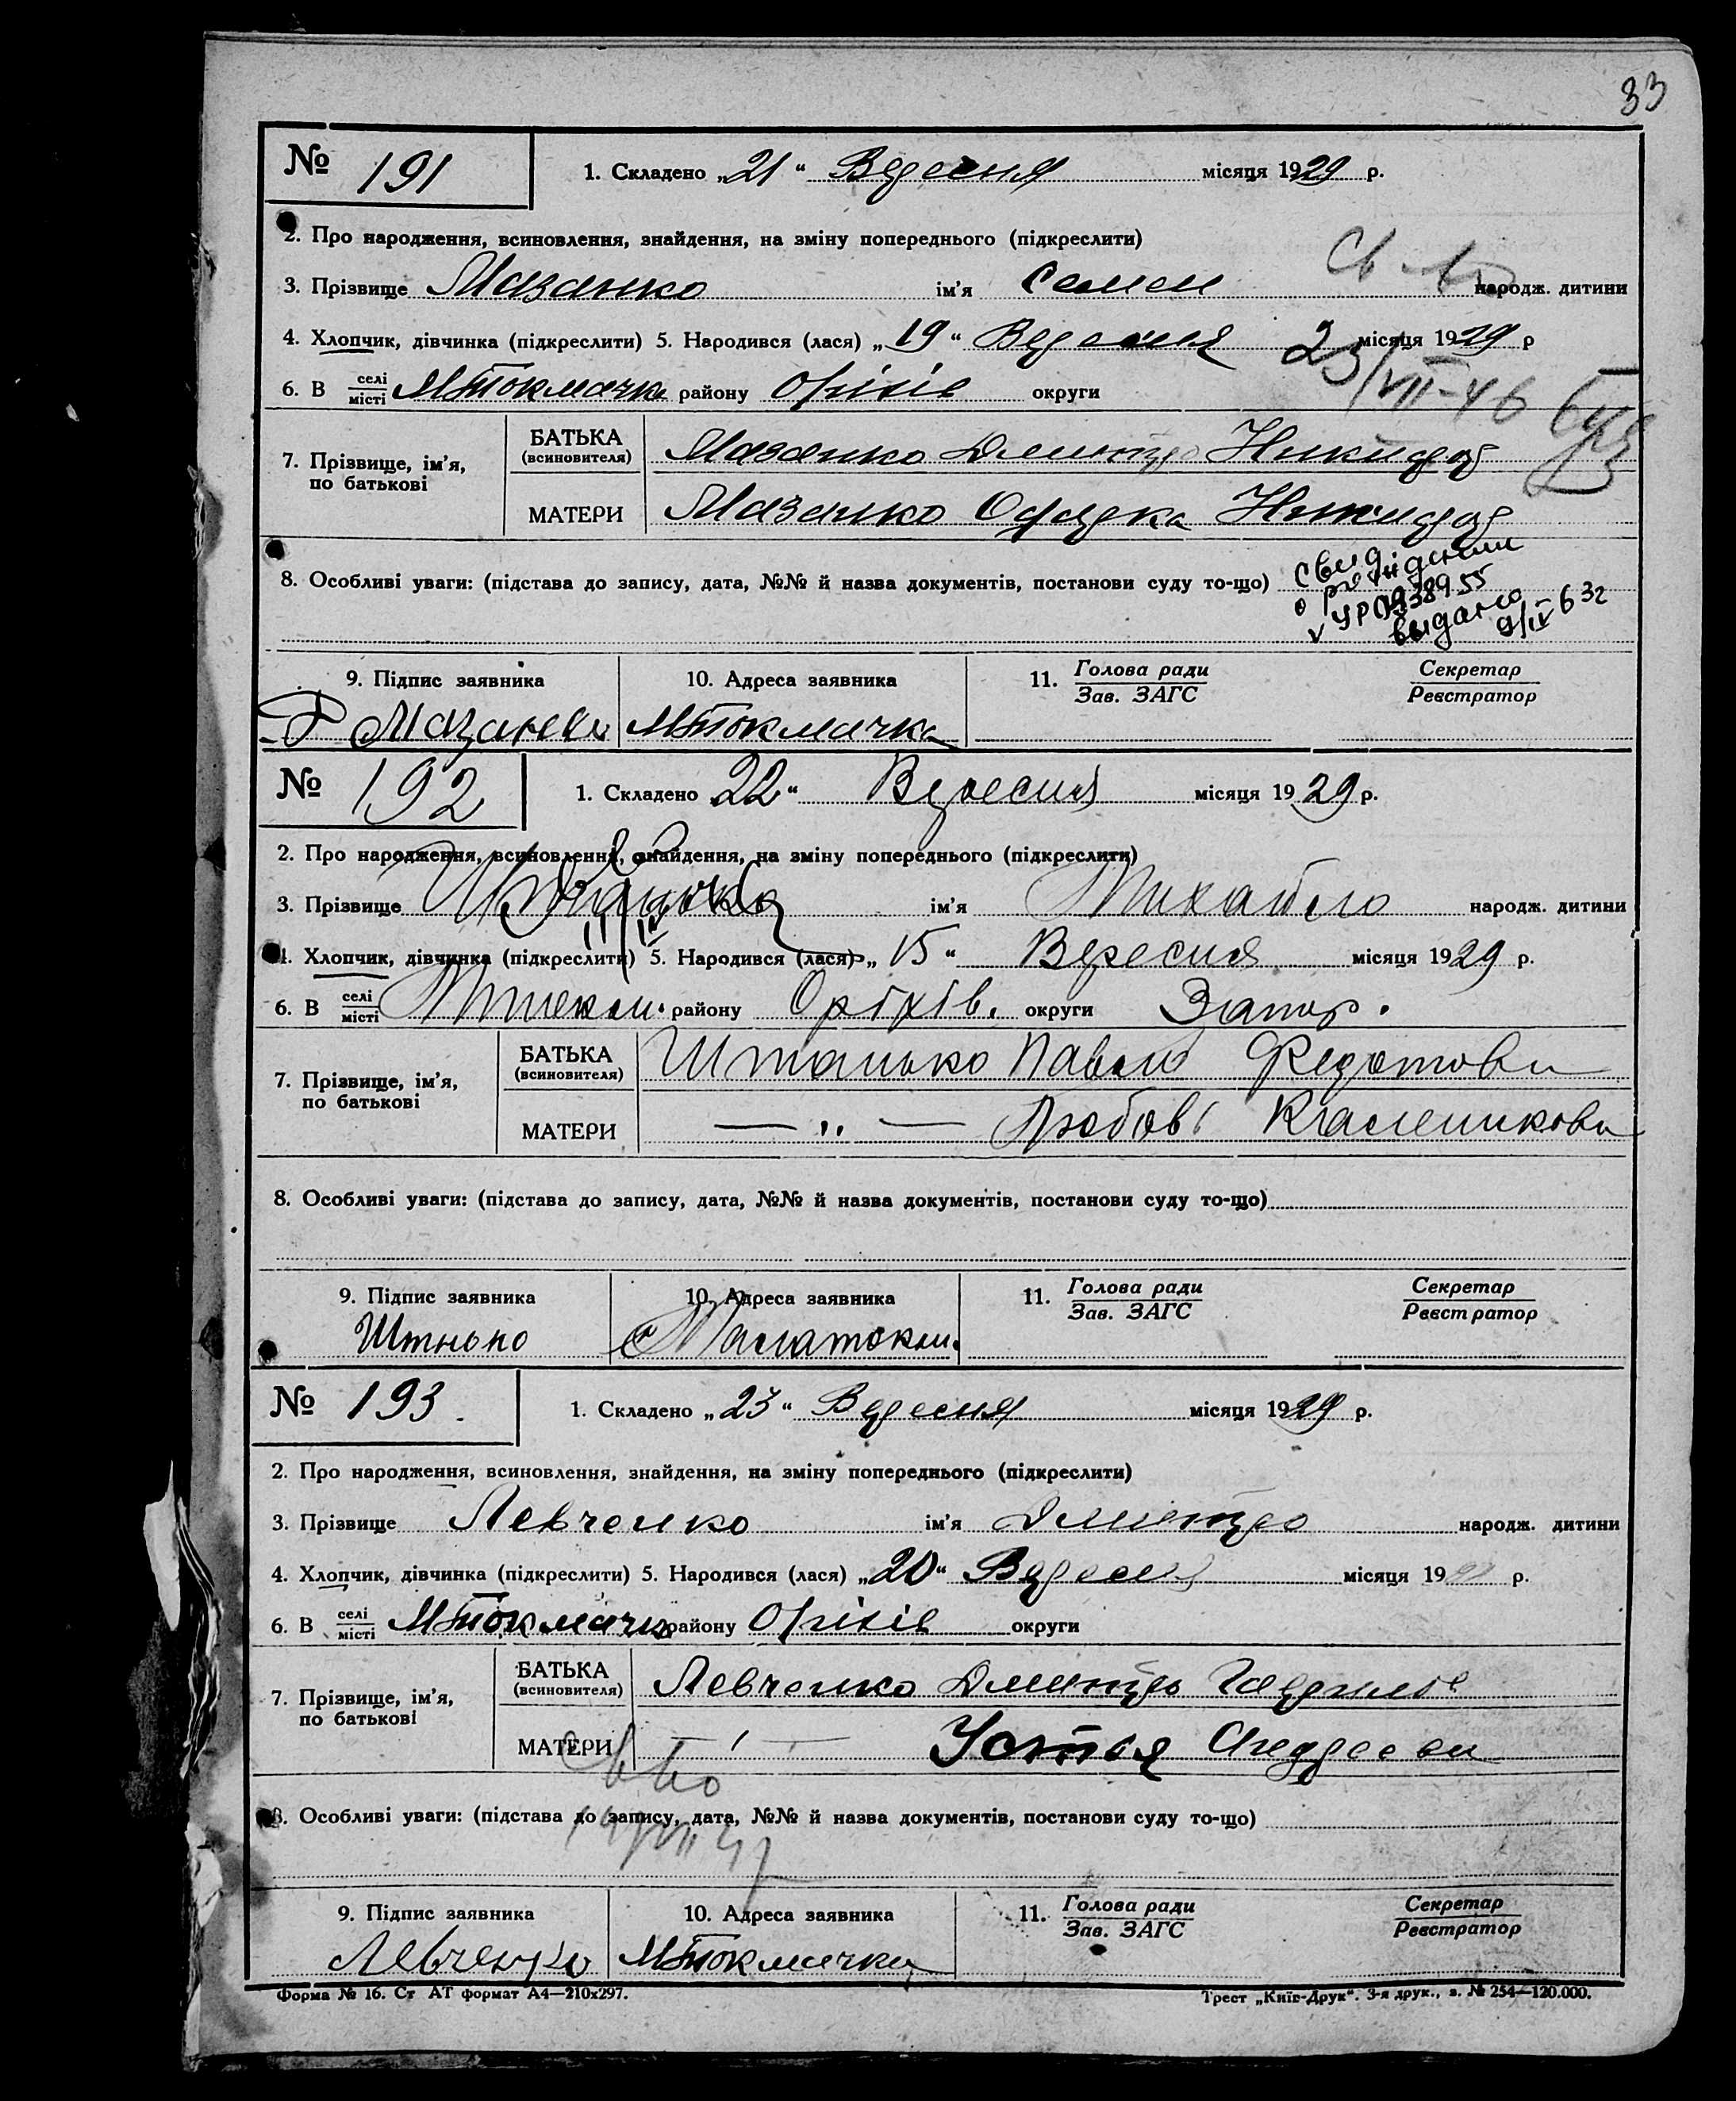 33
№ 191
1. Складено „21“ Вересня місяця 1929 р.
2. Про народження, всиновлення, знайдення, на зміну попереднього (підкреслити)
3. Прізвище Мазанко ім'я Семен народж. дитини
4. Хлопчик, дівчинка (підкреслити) 5. Народився (лася) „19“ Вересня місяця 1929 р
23/VII-46
6. В селі місті МТокмачка району Оріхів округи
7. Прізвище, ім'я, по батькові
БАТЬКА (всиновителя) Мазанко Дмитро
МАТЕРИ Мазанко
8. Особливі уваги: (підстава до запису, дата, №№ й назва документів, постанови суду то-що)
о рождении
выдано 9/IV 63г
9. Підпис заявника 10. Адреса заявника 11. Голова ради Зав. ЗАГС Секретар Реєстратор
МТокмачка
№ 192
1. Складено 22“ Вересня місяця 1929 р.
2. Про народження, всиновлення, знайдення, на зміну попереднього (підкреслити)
3. Прізвище ім'я Михайло народж. дитини
4. Хлопчик, дівчинка (підкреслити) 5. Народився (лася) „15“ Вересня місяця 1929 р.
6. В селі місті району Оріхів. округи Запор.
7. Прізвище, ім'я, по батькові
БАТЬКА (всиновителя) Штанько Павло Федотови
МАТЕРИ — „ — Любовь
8. Особливі уваги: (підстава до запису, дата, №№ й назва документів, постанови суду то-що)
9. Підпис заявника 10. Адреса заявника 11. Голова ради Зав. ЗАГС Секретар Реєстратор
Штнько
№ 193.
1. Складено „23“ Вересня місяця 1929 р.
2. Про народження, всиновлення, знайдення, на зміну попереднього (підкреслити)
3. Прізвище Левченко ім'я Дмитро народж. дитини
4. Хлопчик, дівчинка (підкреслити) 5. Народився (лася) „20“ Вересня місяця 19 р.
6. В селі місті МТокмачка району Оріхів округи
7. Прізвище, ім'я, по батькові
БАТЬКА (всиновителя) Левченко Дмитро
МАТЕРИ — „ — Устья
8. Особливі уваги: (підстава до запису, дата, №№ й назва документів, постанови суду то-що)
9. Підпис заявника 10. Адреса заявника 11. Голова ради Зав. ЗАГС Секретар Реєстратор
Левченко МТокмачка
Форма № 16. Ст АТ формат А4—210x297. Трест „Київ-Друк“. 3-я друк., з. № 254—120.000.